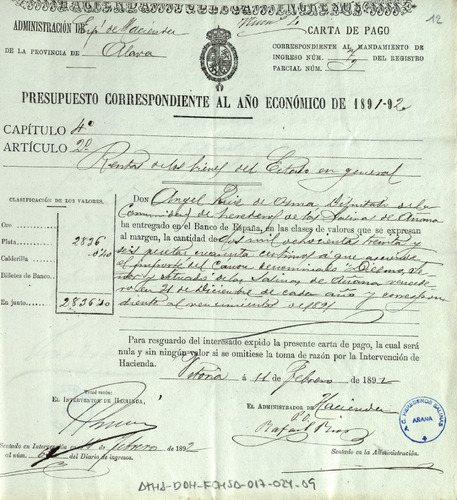 12
ADMINISTRACIÓN DE Espl de Hacienda
CARTA DE PAGO
DE LA PROVINCIA DE Alava
CORRESPONDIENTE AL MANDAMIENTO DE
INGRESO NÚM. DEL REGISTRO
PARCIAL NÚM.
PRESUPUESTO CORRESPONDIENTE AL AÑO ECONÓMICO DE 1891-92
CAPÍTULO 4º
ARTÍCULO 2º
Rentas de los bienes del Estado en general
CLASIFICACIÓN DE LOS VALORES.
Oro
Plata 2836
Calderilla 0'40
Billetes de Banco.
En junto 2836'40
DON Angel Ruiz de Osma Diputado de la
Comunidad de herederos de las Salinas de Añana
ha entregado en el Banco de España, en las clases de valores que se expresan
al margen, la cantidad de dos mil ochocientas treinta y
seis pesetas cuarenta centimos á que asciende
el importe del Canon denominado "Diezmo,
y situados" de las Salinas de Añana
en 21 de Diciembre de cada año y correspon
diente al vencimiento de 1891
Para resguardo del interesado expido la presente carta de pago, la cual será
nula y sin ningún valor si se omitiese la toma de razón por la Intervención de
Hacienda.
Vitoria á 11 Febrero de 1892
Tomé razón:
EL INTERVENTOR DE HACIENDA,
EL ADMINISTRADOR DE Hacienda
P.O.
Rafael
Sentado en Intervención Febrero de 1892
al núm. del Diario de ingresos.
Sentado en la Administración al núm.
A.C. HEREDEROS SALINAS
AÑANA
AHA-DOH-FCHSA-017-024-09